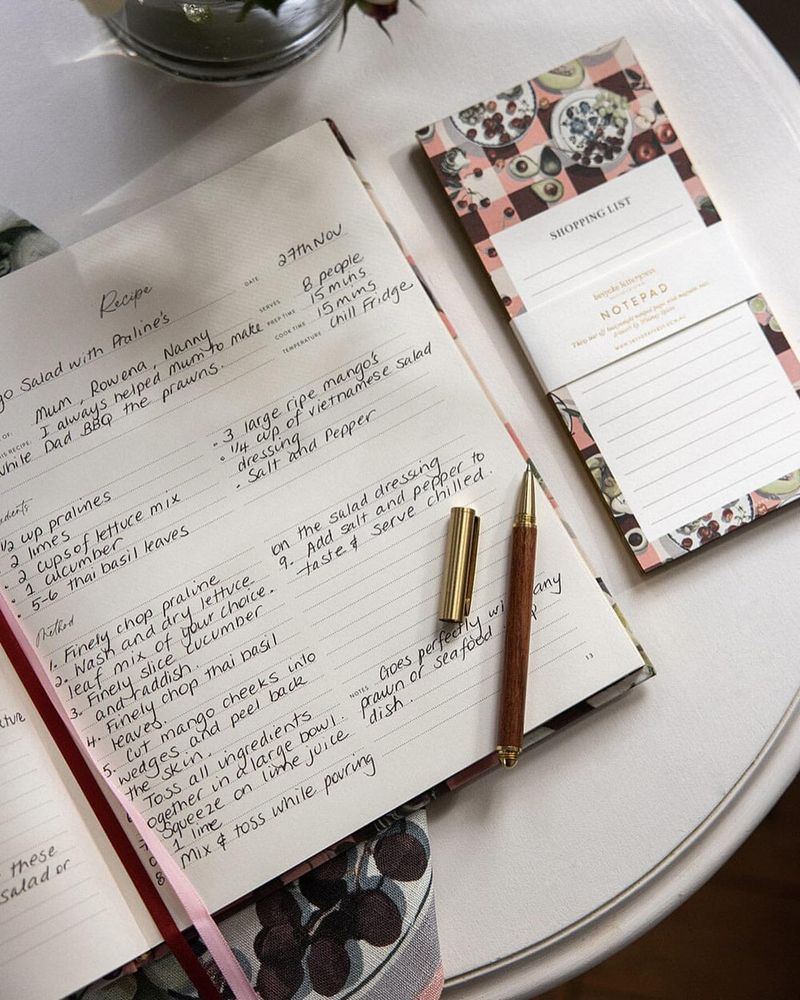 Recipe
DATE 27th Nov
go Salad with Praline's
SERVES 8 people
PREP TIME 15 mins
COOK TIME 15 mins
TEMPERATURE Chill Fridge
OF: Mum, Rowena, Nanny
THIS RECIPE: I always helped mum to make
while Dad BBQ the prawns.
1/2 cup pralines
2 limes
• 2 cups of lettuce mix
• 1 cucumber
• 5-6 thai basil leaves
• 3 large ripe mango's
• 1/4 cup of vietnamese salad
dressing
• Salt and Pepper
Method
1. Finely chop praline
2. Wash and dry lettuce
leaf mix of your choice.
3. Finely slice cucumber
and raddish.
4. Finely chop thai basil
leaves.
5. Cut mango cheeks into
wedges and peel back
the skin.
6 Toss all ingredients
together in a large bowl.
Squeeze on lime juice
1 lime
8. Mix & toss while pouring
on the salad dressing
9. Add salt and pepper to
taste & serve chilled.
NOTES Goes perfectly with any
prawn or seafood
dish.
13
these
salad or
SHOPPING LIST
bespoke letterpress
NOTEPAD